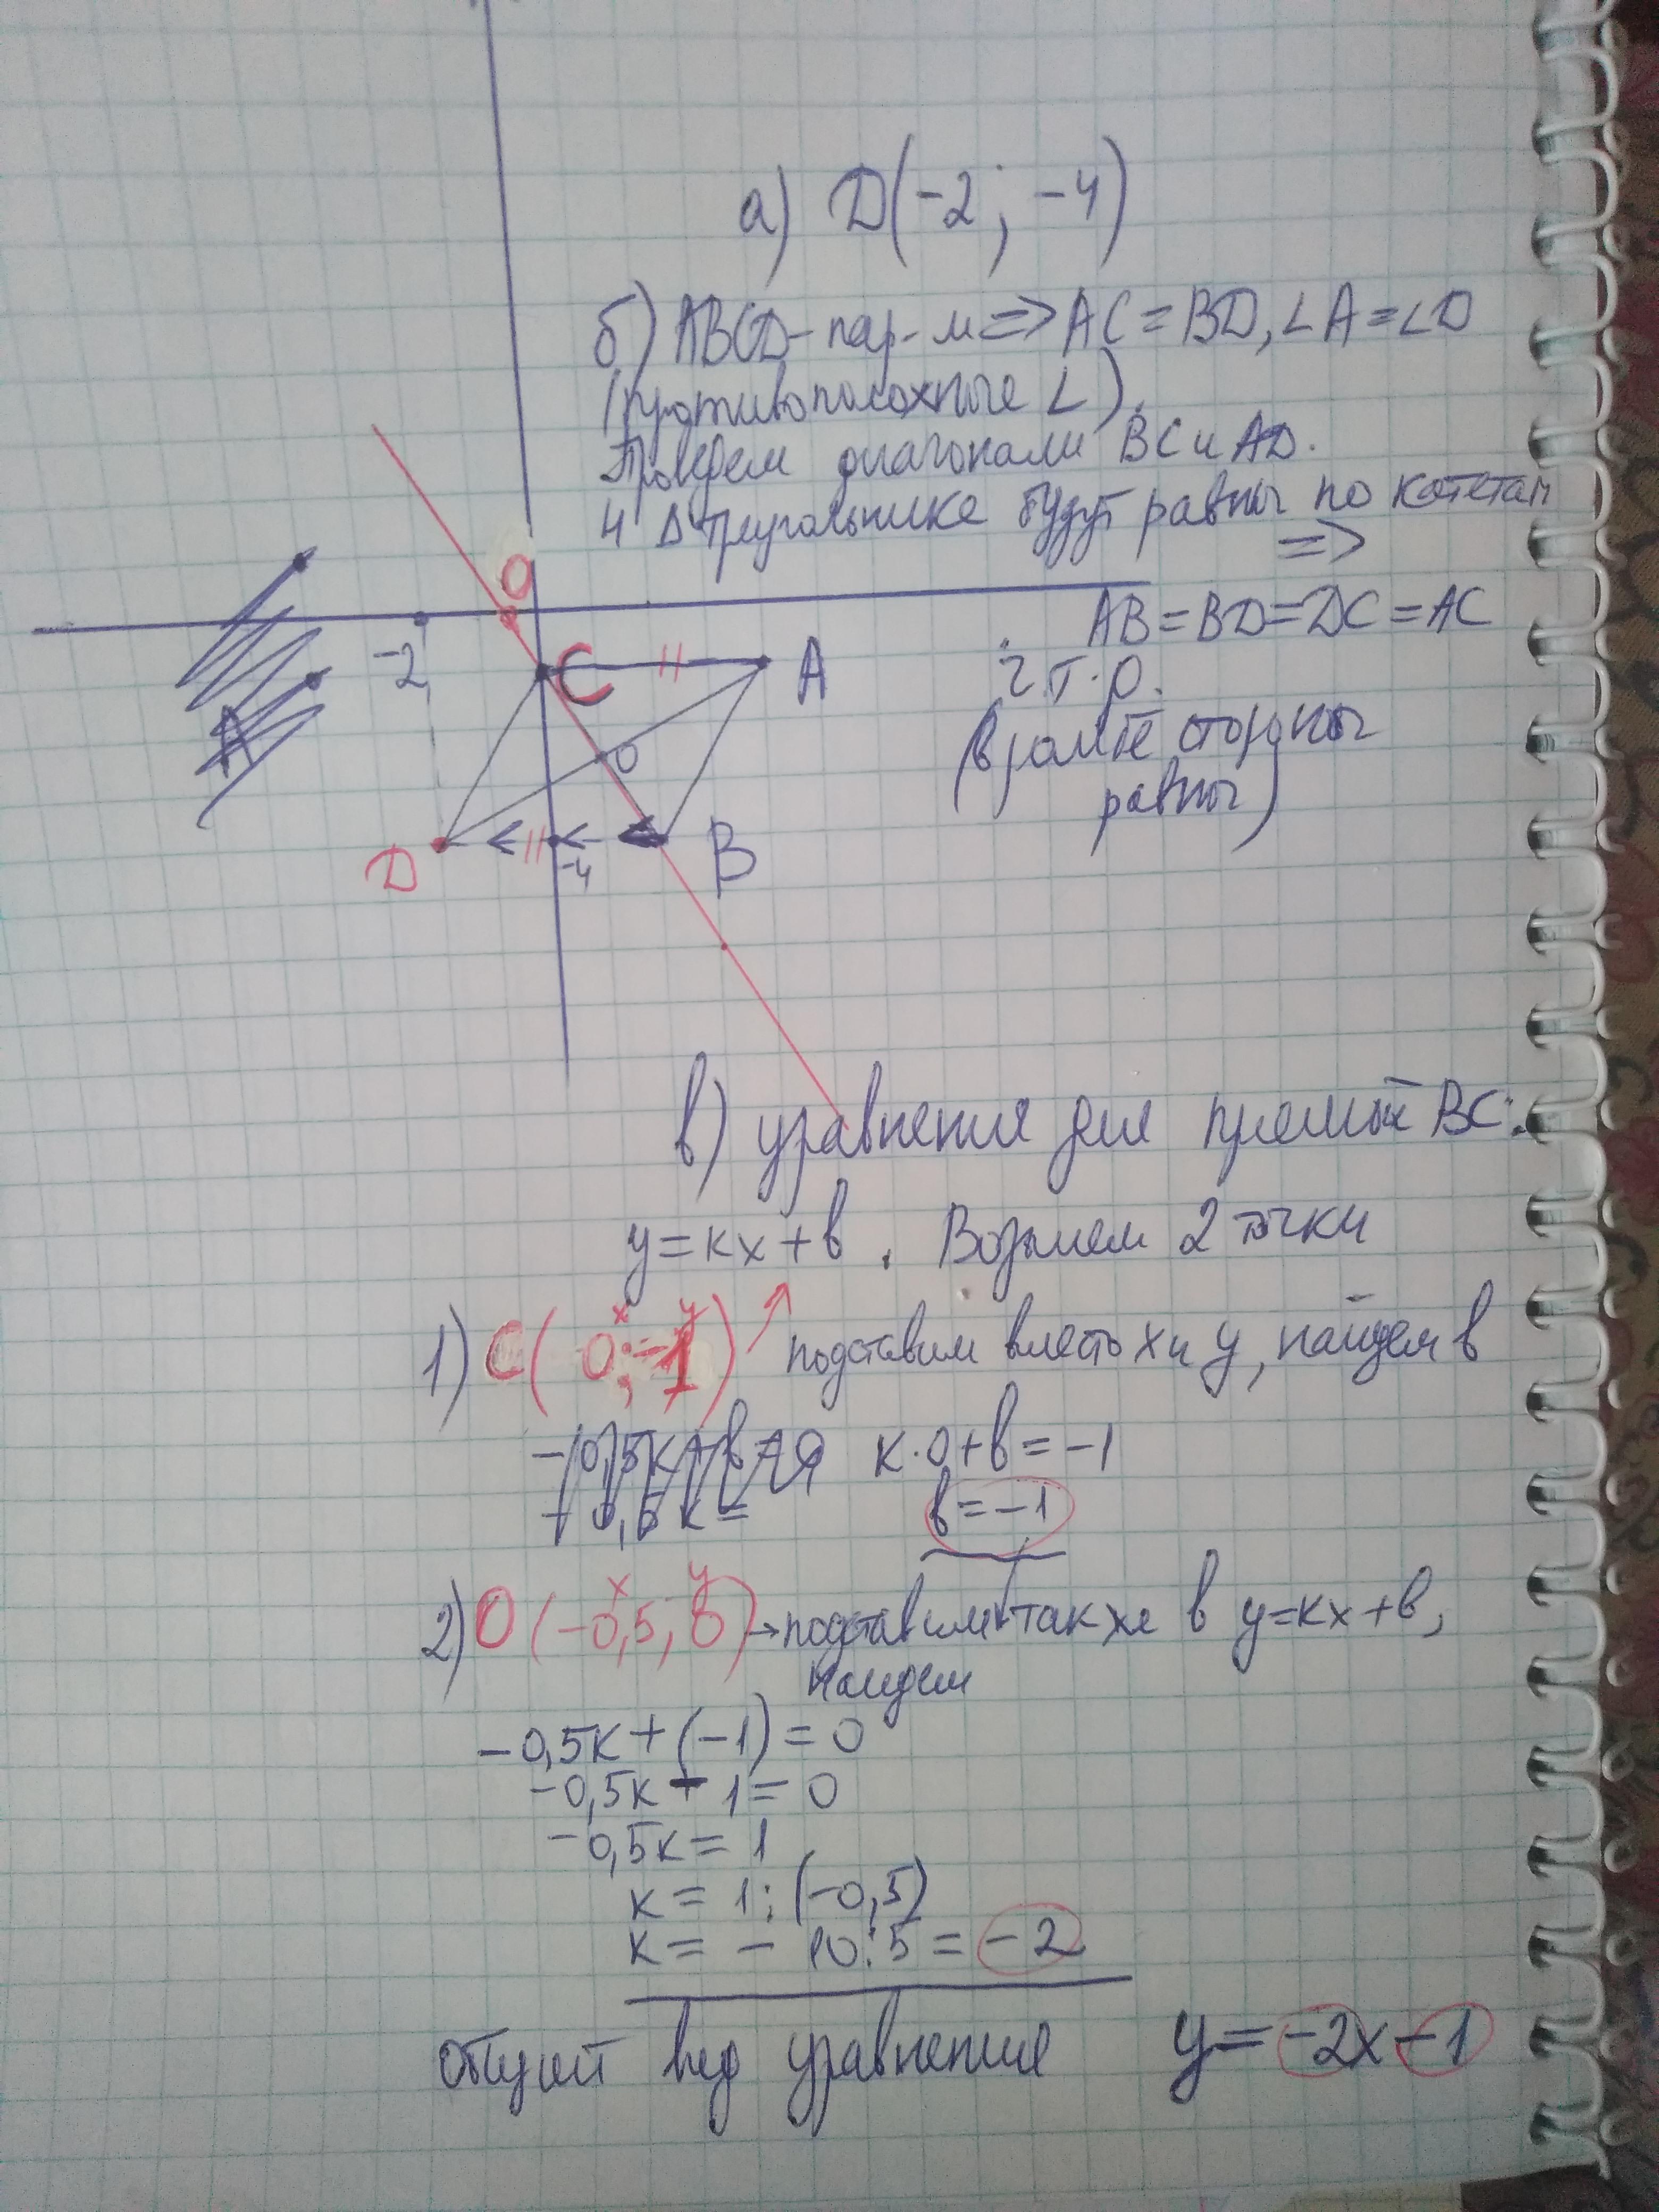 а) D(-2; -4)
б) ABCD - пар-м => AC = BD, ∠A = ∠D
(противоположные ∠).
Проведем диагонали BC и AD.
4 Δ треугольнике будут равны по катетам
=>
AB = BD = DC = AC
ч.т.д.
(в ромбе стороны
равны)
O
-2
C
A
A
O
D
-4
B
в) уравнения для прямых BC:
y = kx + b. Возьмем 2 точки
x y
1) C( 0; -1) подставим вместо x и y, найдем b
k·0 + b = -1
b = -1
x y
2) O (-0,5, 0) → подставим также в y = kx + b,
найдем
-0,5k + (-1) = 0
-0,5k - 1 = 0
-0,5k = 1
k = 1 : (-0,5)
k = - 10 : 5 = -2
общий вид уравнения y = -2x - 1